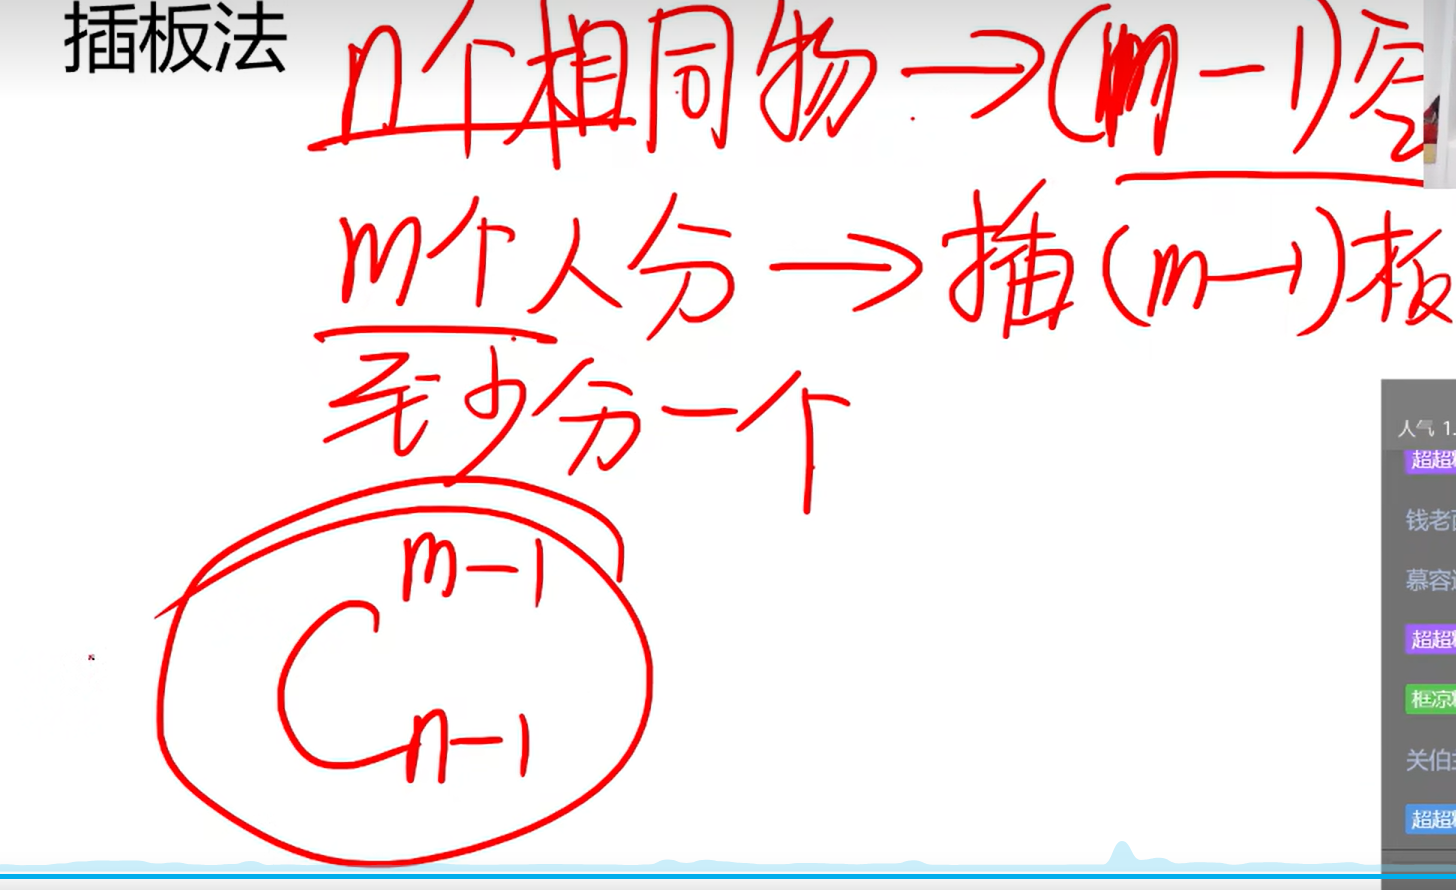 插板法
n个相同物→(m-1)空
m个人分→插(m-1)板
至少分一个
C
m-1
n-1
人气 1.
超超
钱老
慕容
超超
框凉
关伯
超超